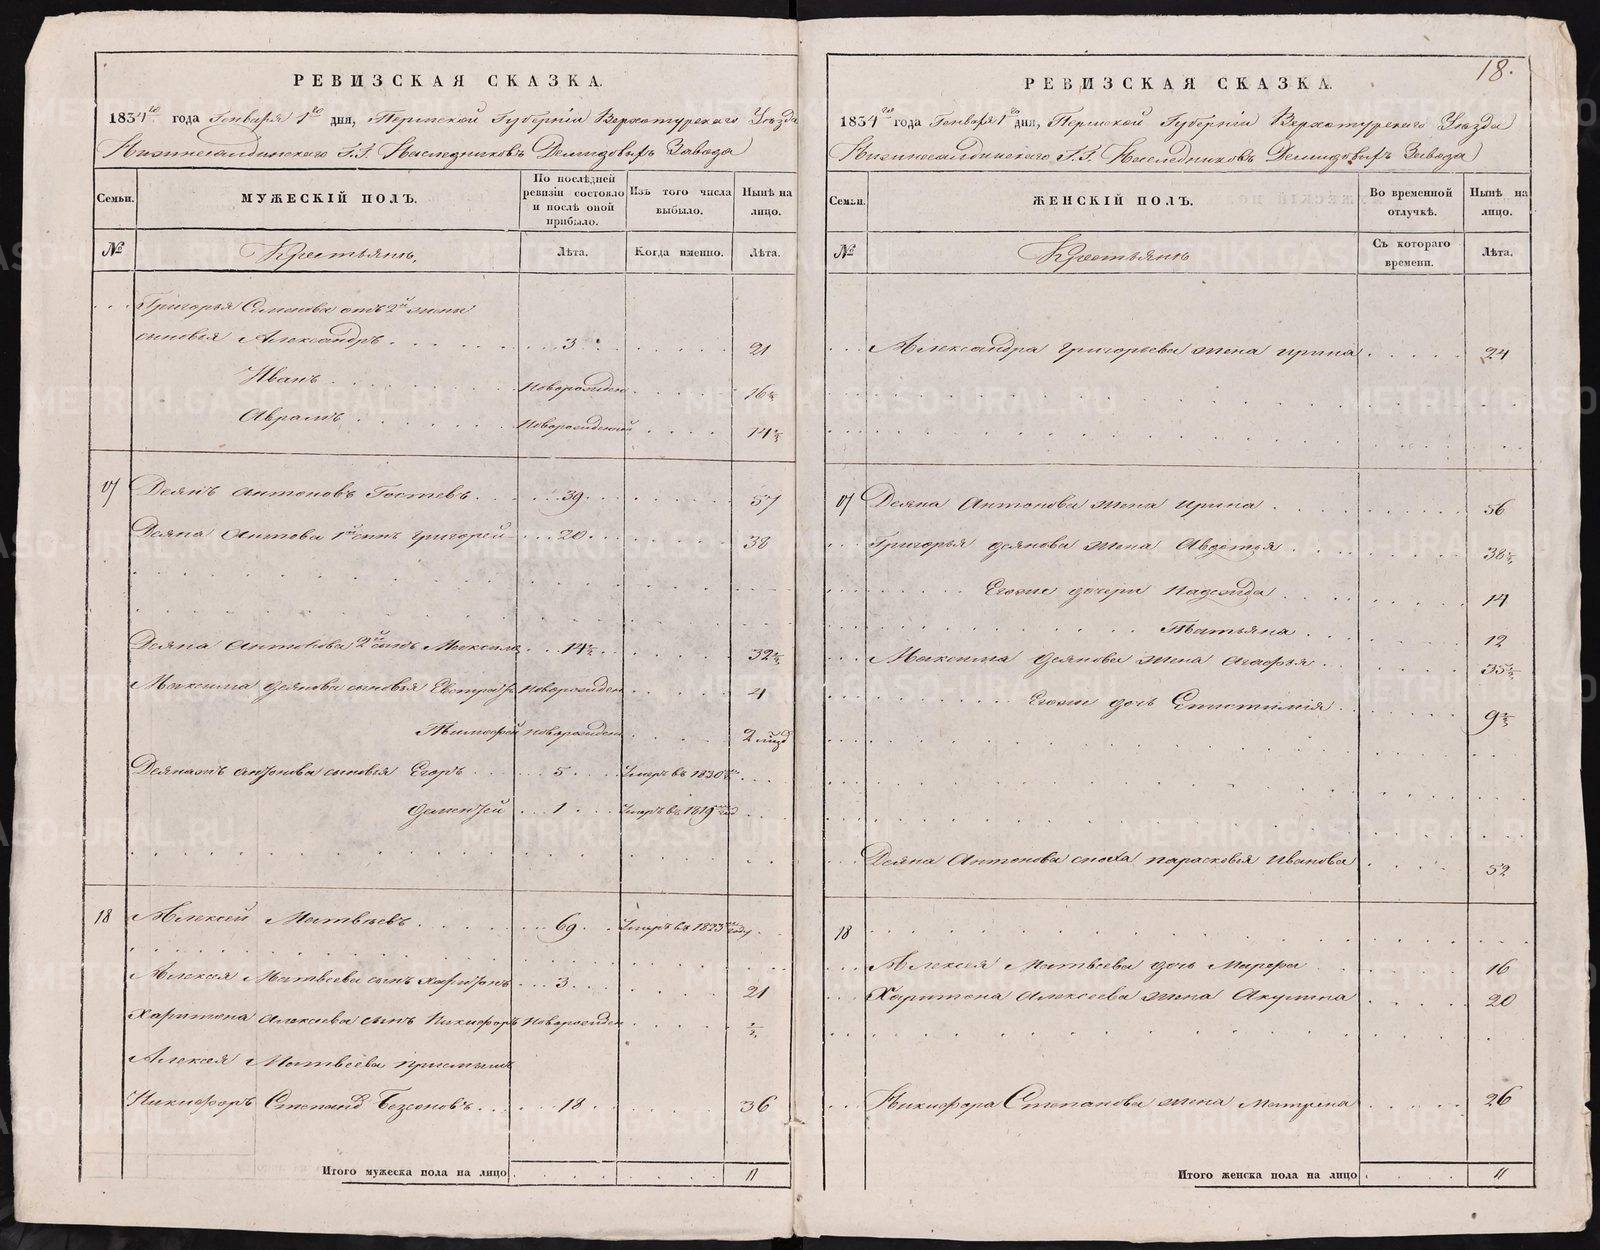 РЕВИЗСКАЯ СКАЗКА.
1834го года Генваря 1го дня, Пермской Губерніи Верхотурскаго Уезда
Нижнесалдинскаго Г.Г. Наследниковъ Демидовыхъ Завода
Семьи.
МУЖЕСКІЙ ПОЛЪ.
По послѣдней ревизіи состояло и послѣ оной прибыло.
Изъ того числа выбыло.
Нынѣ на лицо.
№
Крестьянъ,
Лѣта.
Когда именно.
Лѣта.
Григорья Семенова отъ 2й жены
сыновья Александръ 3 21
Иванъ новорожден 16½
Аврамъ новорожденной 14½
17 Деянъ Антоновъ Гостевъ 39 57
Деяна Антонова 1й сынъ Григорей 20 38
Деяна Антонова 2й сынъ Максимъ 14½ 32½
Максима Деянова сыновья Евстрафъ новорожден 4
Тимофей новорожден 2
Деяна Антонова сыновья Егоръ 5 Умеръ въ 1830
Дементей 1 Умеръ въ 1819 год
18 Алексей Матвеевъ 69 Умеръ въ 1823 году
Алексея Матвеева сынъ Харитонъ 3 21
Харитона Алексеева сынъ Никифоръ новорожден ½
Алексея Матвеева приемышъ
Никифоръ Степановъ Безсоновъ 18 36
Итого мужеска пола на лицо 11
18.
РЕВИЗСКАЯ СКАЗКА.
1834го года Генваря 1го дня, Пермской Губерніи Верхотурскаго Уезда
Нижнесалдинскаго Г.Г. Наследниковъ Демидовыхъ Завода
Семьи.
ЖЕНСКІЙ ПОЛЪ.
Во временной отлучкѣ.
Нынѣ на лицо.
№
Крестьянъ
Съ котораго времени.
Лѣта.
Александра Григорьева жена Ирина 24
17 Деяна Антонова жена Ирина 56
Григорья Деянова жена Авдотья 38½
Егоже дочери Надежда 14
Татьяна 12
Максима Деянова жена Агафья 35½
Егоже дочь Епистимія 9½
Деяна Антонова сноха Парасковья Иванова 52
18
Алексея Матвеева дочь Марфа 16
Харитона Алексеева жена Акулина 20
Никифора Степанова жена Матрена 26
Итого женска пола на лицо 11
METRIKI.GASO-URAL.RU